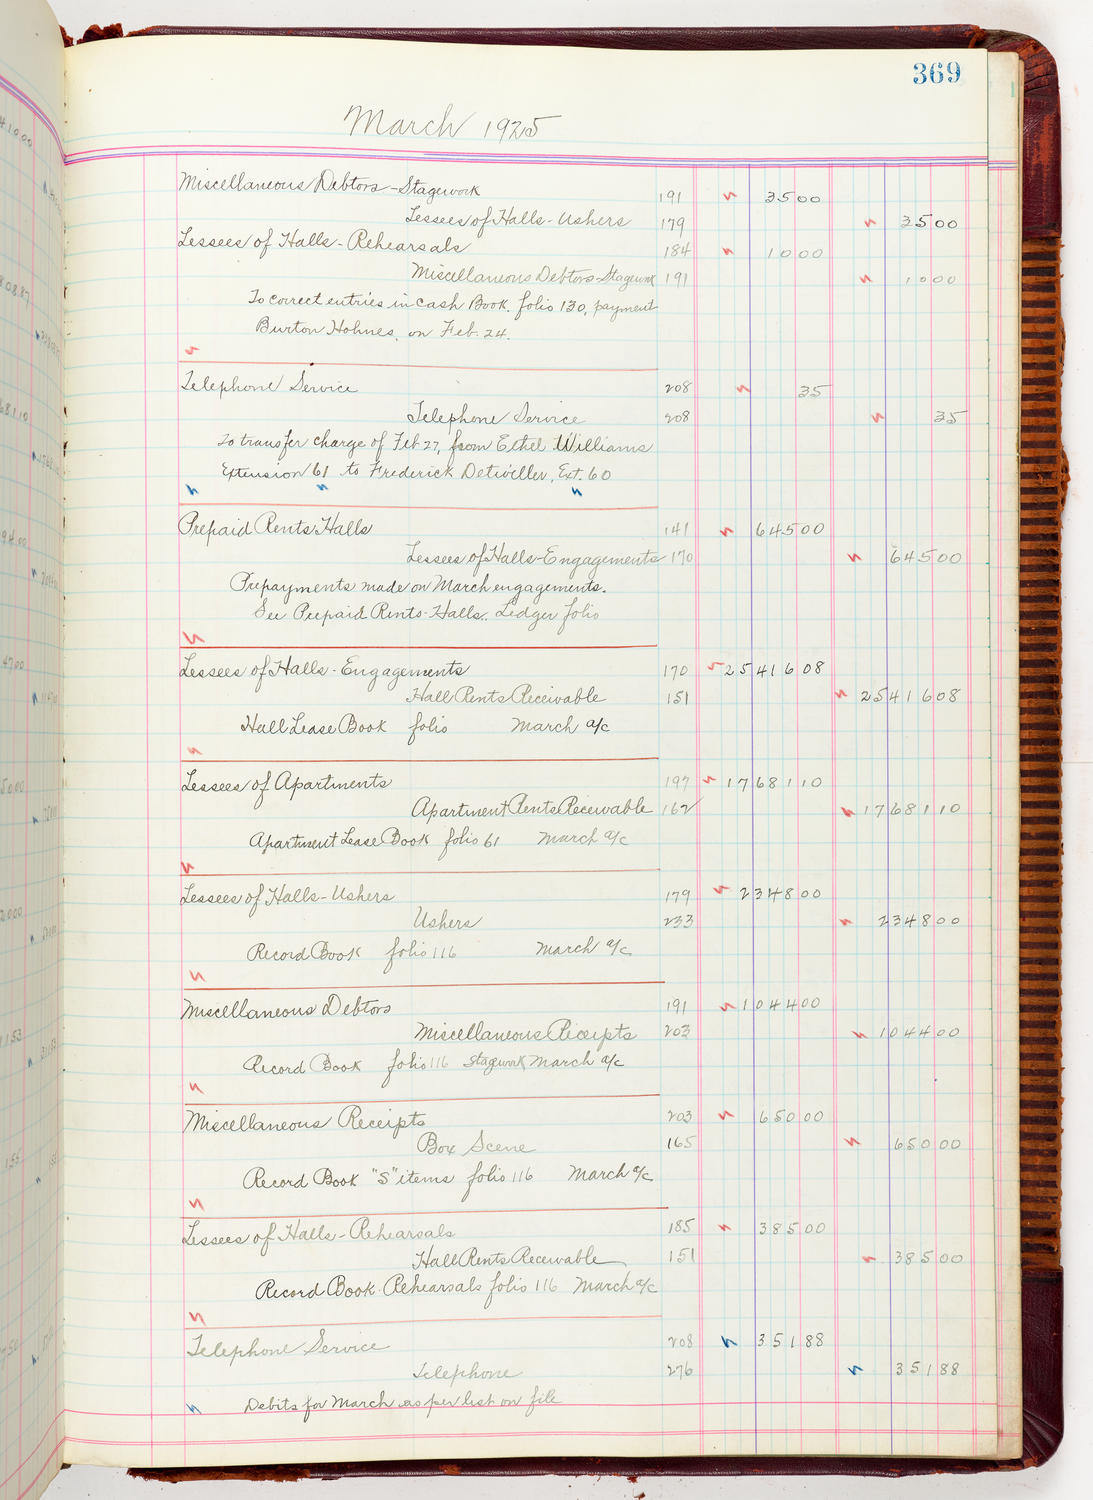 369
March 1925
Miscellaneous Debtors - Stagework 191 3500
Lessees of Halls - Ushers 179 3500
Lessees of Halls - Rehearsals 184 1000
Miscellaneous Debtors - Stagework 191 1000
To correct entries in Cash Book. folio 130, payment
Burton Holmes, on Feb. 24.
Telephone Service 208 35
Telephone Service 208 35
To transfer charge of Feb 27, from Ethel Williams
Extension 61 to Frederick Detwiller, Ext. 60
Prepaid Rents Halls 141 64500
Lessees of Halls - Engagements 170 64500
Prepayments made on March engagements.
See Prepaid Rents - Halls. Ledger folio
Lessees of Halls - Engagements 170 2541608
Hall Rents Receivable 151 2541608
Hall Lease Book folio March a/c
Lessees of Apartments 197 1768110
Apartment Rents Receivable 162 1768110
Apartment Lease Book folio 61 March a/c
Lessees of Halls - Ushers 179 234800
Ushers 233 234800
Record Book folio 116 March a/c
Miscellaneous Debtors 191 104400
Miscellaneous Receipts 203 104400
Record Book folio 116 Stagework March a/c
Miscellaneous Receipts 203 65000
Box Scene 165 65000
Record Book "S" items folio 116 March a/c
Lessees of Halls - Rehearsals 185 38500
Hall Rents Receivable 151 38500
Record Book - Rehearsals folio 116 March a/c
Telephone Service 208 35188
Telephone 276 35188
Debits for March as per list on file